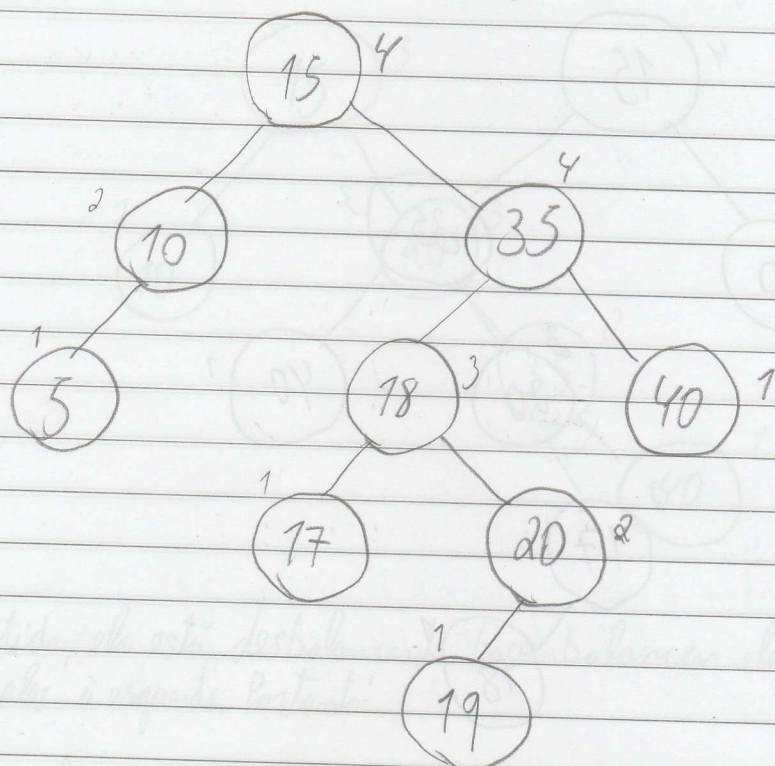 15 4
2 10 35 4
1 5 18 3 40 1
1 17 20 2
1 19